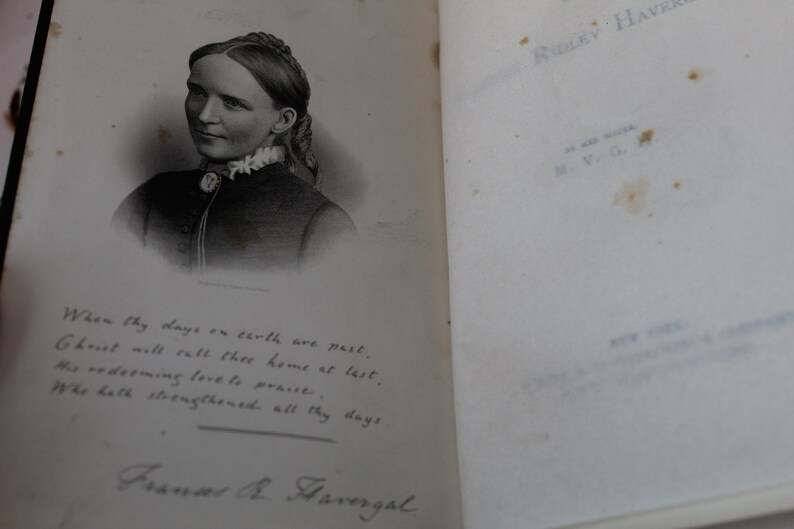 When thy days on earth are past,
Christ will call thee home at last,
His redeeming love to praise,
Who hath strengthened all thy days
Frances R Havergal
Ridley Haver
BY HER SISTER,
M. V. G. H.
NEW YORK